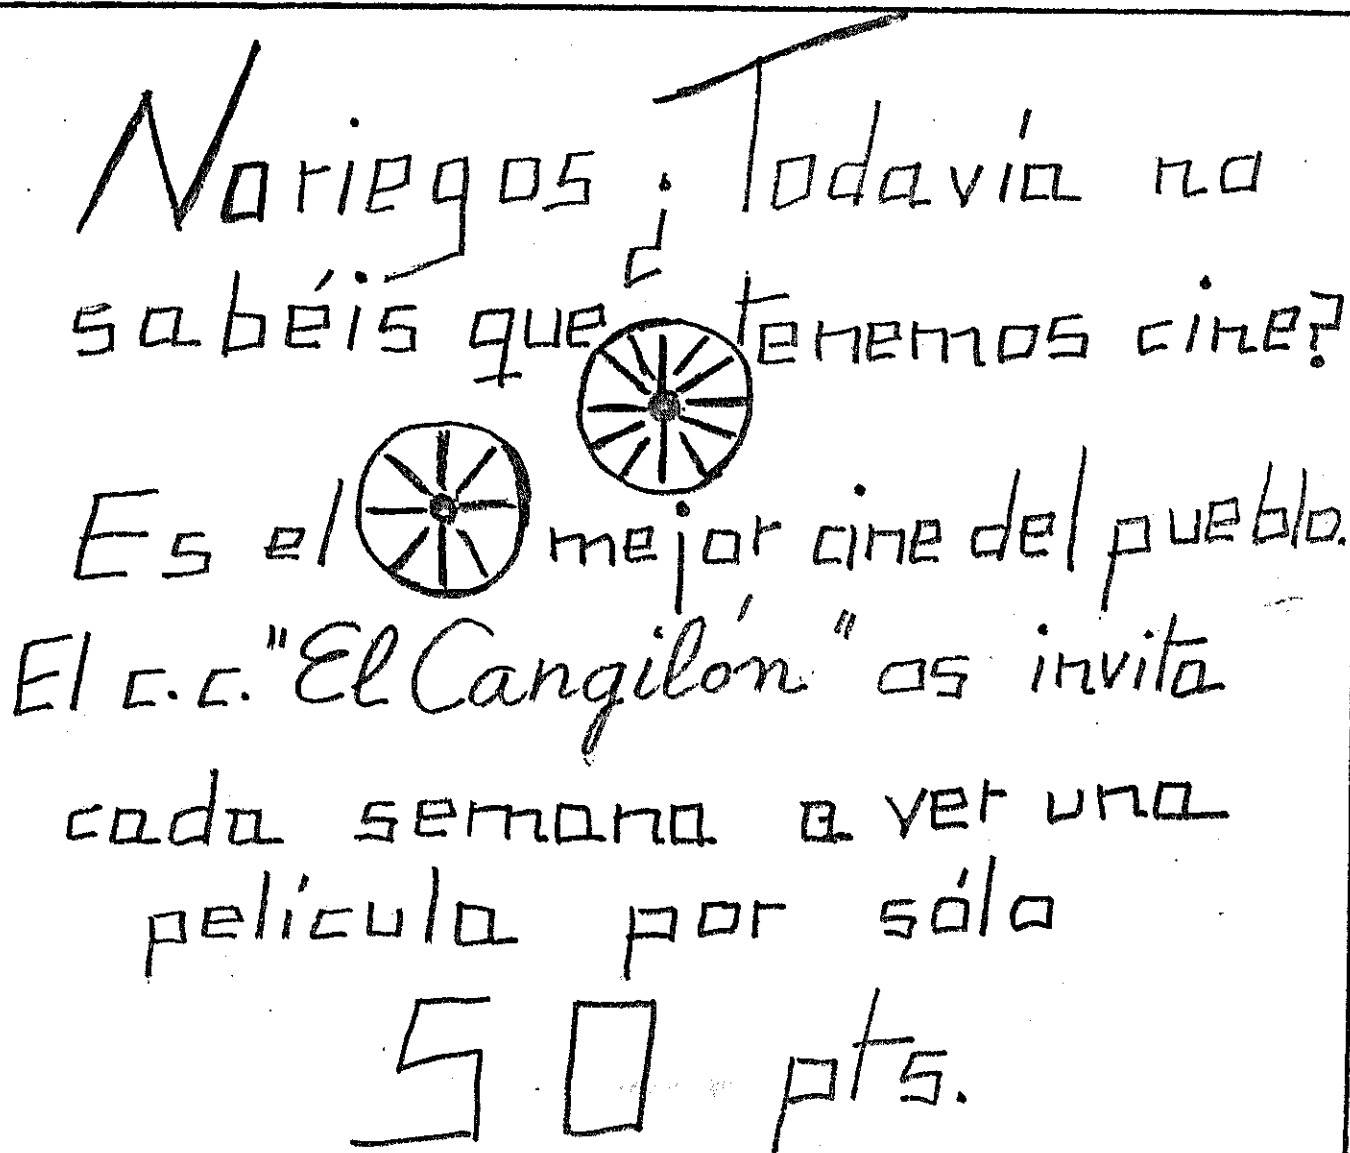 Noriegos ¿Todavía no
sabéis qué tenemos cine?
Es el mejor cine del pueblo.
El c.c. "El Cangilón" os invita
cada semana a ver una
película por sólo
50 pts.